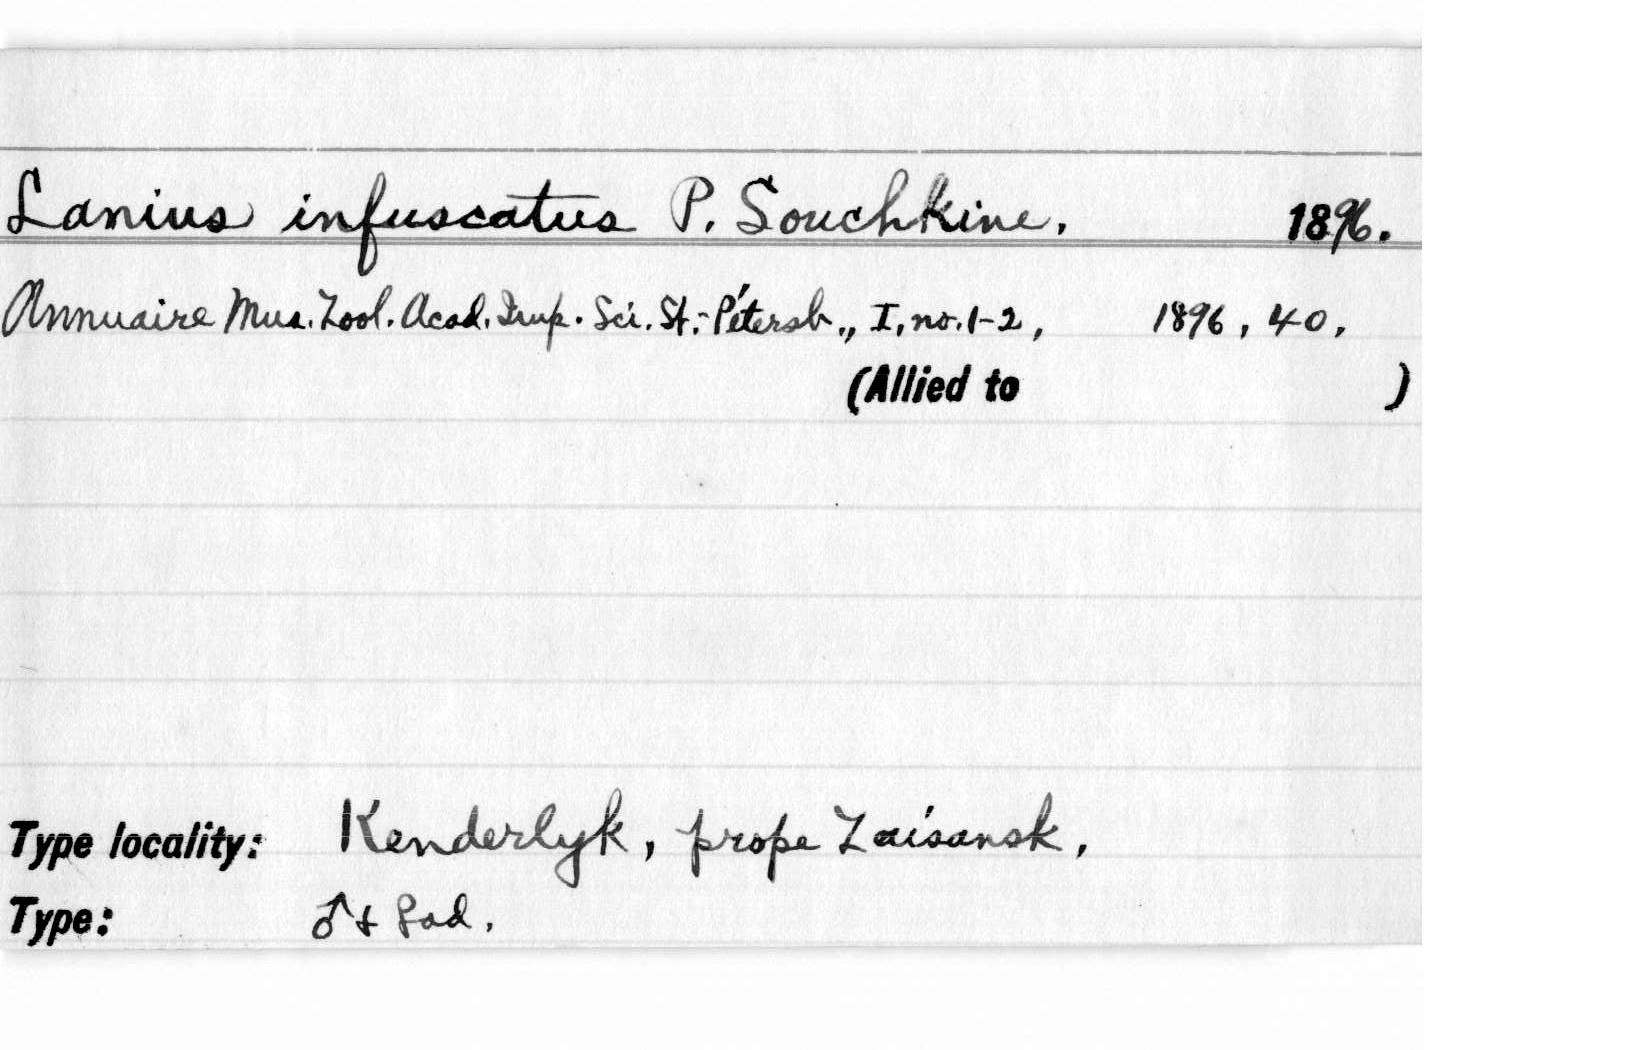 Lanius infuscatus P. Souchkine. 1896.
Annuaire Mus. Zool. Acad. Imp. Sci. St.-Pétersb., I, no. 1-2, 1896, 40,
(Allied to )
Type locality: Kenderlyk, prope Zaisansk,
Type: ♂ + ♀ ad.